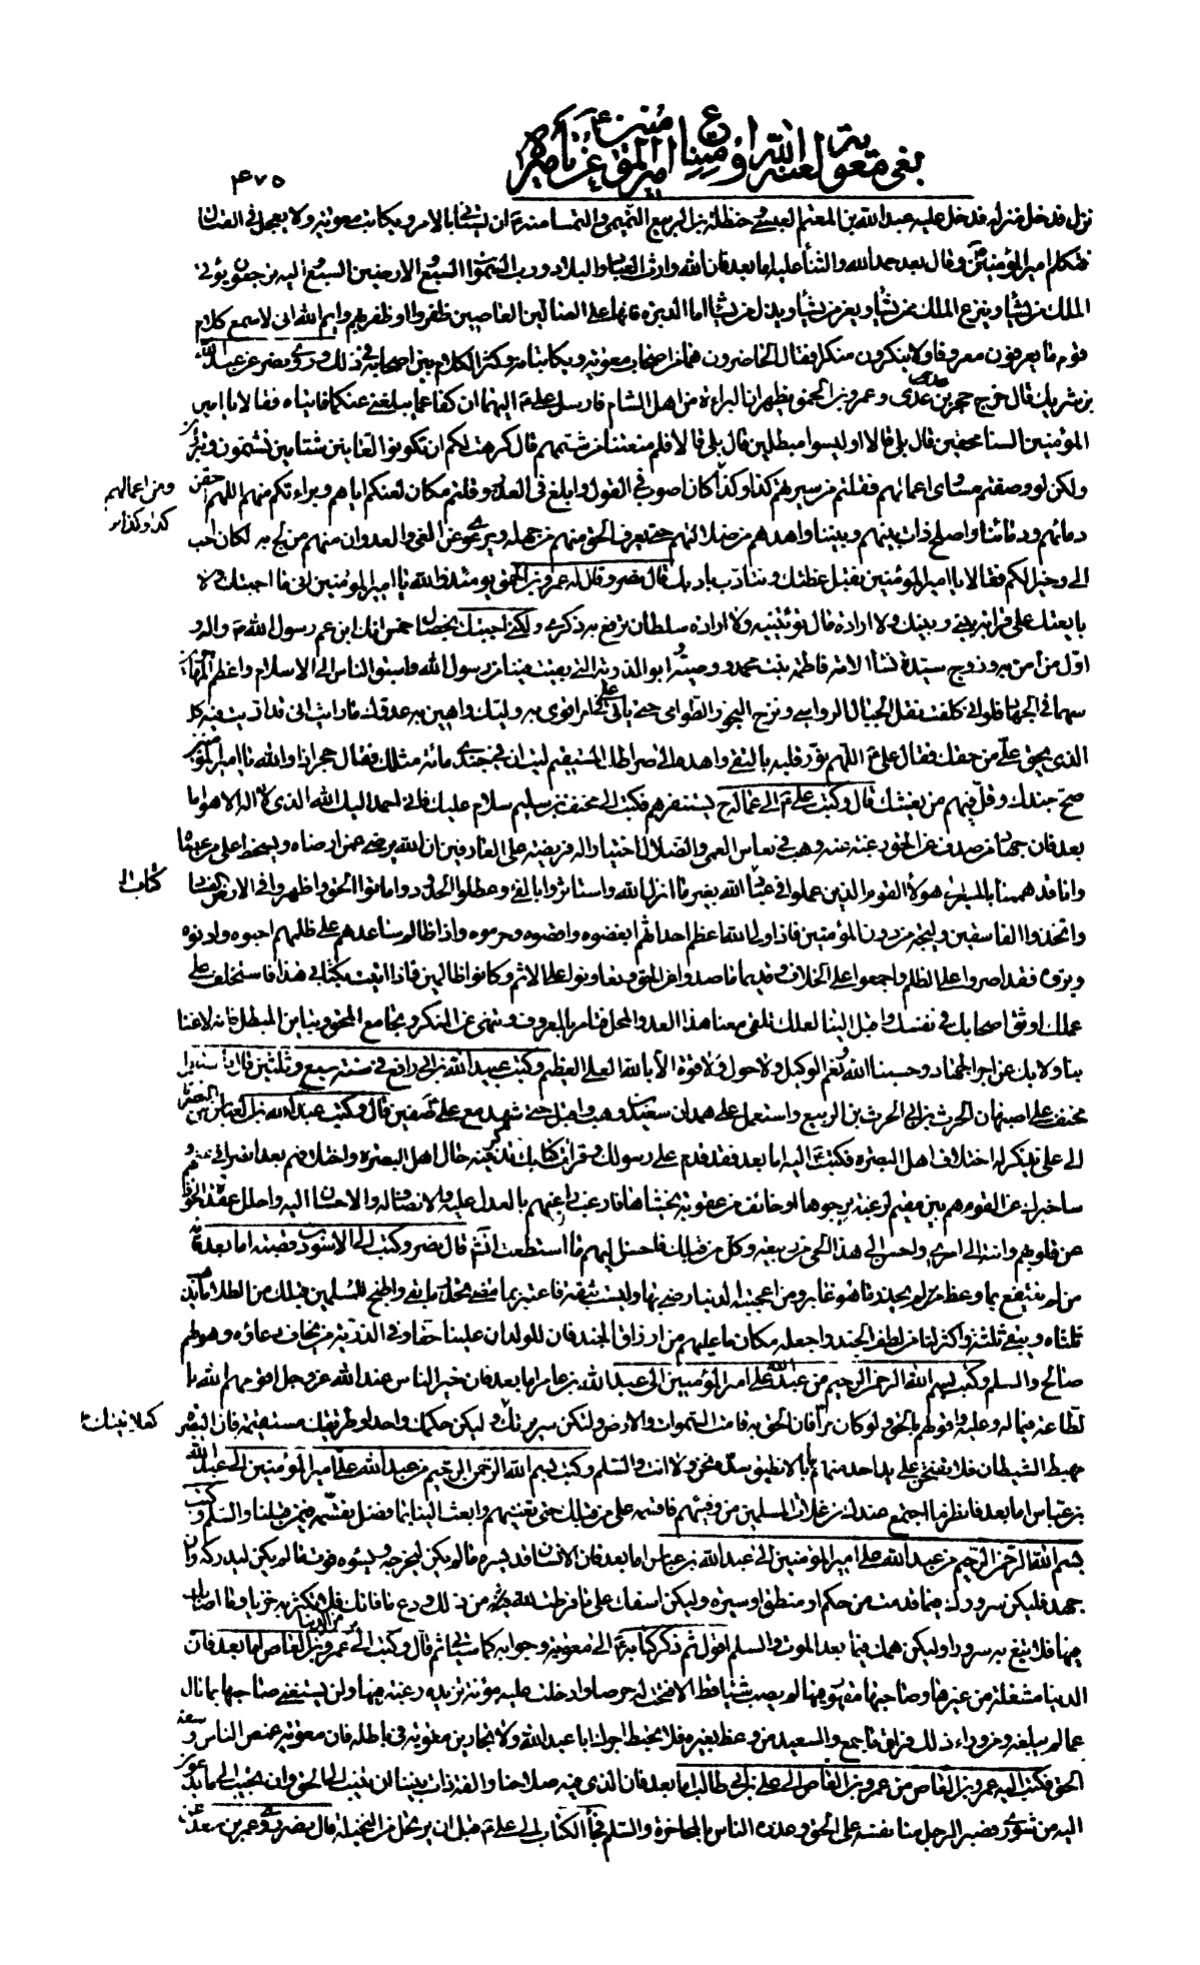 بغى معوية لعنه الله وامتناع امير المؤمنين ع عن تأميره
٤٧٥
نزل فدخل منزله فدخل عليه عبد الله بن المعتم العبسي وحنظلة بن الربيع التميمي والتمسا منه ان يستأني بالامر ويكاتب معوية ولا يعجل في القتال
فتكلم امير المؤمنين ع وقال بعد حمد الله والثناء عليه اما بعد فان الله وارث العباد والبلاد ورب السموات السبع والارضين السبع اليه ترجعون يؤتي
الملك من يشاء وينزع الملك ممن يشاء ويعز من يشاء ويذل من يشاء اما الدبرة فانها على الضالين العاصين ظفروا او ظفر بهم وايم الله اني لاسمع كلام
قوم ما يعرفون معروفا ولا ينكرون منكرا فقال الحاضرون هما من اصحاب معوية ويكاتبانه وكثر الكلام بين اصحابه في ذلك وروى نصر عن عبد الله
بن شريك قال خرج حجر بن عدى وعمرو بن الحمق يظهران البراءة من اهل الشام فارسل على ع اليهما ان كفا عما يبلغني عنكما فاتياه فقالا يا امير
المؤمنين السنا محقين قال بلى قالا اوليسوا مبطلين قال بلى قالا فلم منعتنا من شتمهم قال كرهت لكم ان تكونوا لعانين شتامين تشتمون وتبرؤن
ولكن لو وصفتم مساوى اعمالهم فقلتم من سيرتهم كذا وكذا كان اصوب في القول وابلغ في العذر وقلتم مكان لعنكم اياهم وبراءتكم منهم اللهم احقن
ومن اعمالهم
كذا وكذا
دمائهم ودمائنا واصلح ذات بينهم وبيننا واهدهم من ضلالتهم حتى يعرف الحق منهم من جهله ويرعوى عن الغى والعدوان منهم من لج به لكان احب
الى وخيرا لكم فقالا يا امير المؤمنين نقبل عظتك ونتادب بادبك قال نصر وقال له عمرو بن الحمق يومئذ والله يا امير المؤمنين اني ما احببتك ولا
بايعتك على قرابة بيني وبينك ولا ارادة مال تؤتينيه ولا ارادة سلطان ترفع به ذكرى ولكني احببتك بخصال خمس انك ابن عم رسول الله ص واله و
اول من آمن به وزوج سيدة نساء الامة فاطمة بنت محمد ووصيه وابو الذرية التي بقيت فينا من رسول الله واسبق الناس الى الاسلام واعظم المهاجرين
سهما في الجهاد فلو اني كلفت نقل الجبال الرواسي ونزح البحور الطوامي حتى يأتي على امر اقوى به وليك واهين به عدوك ما رايت اني قد اديت فيه كل
الذي يحق علي من حقك فقال على ع اللهم نور قلبه بالتقى واهده الى صراطك المستقيم ليت ان في جندى مائة مثلك فقال حجر اذا والله يا امير المؤمنين
صح جندك وقل فيهم من يغشك قال وكتب على ع الى عماله يستنفرهم فكتب الى مخنف بن سليم سلام عليك فاني احمد اليك الله الذي لا اله الا هو اما
بعد فان جهاد من صدف عن الحق رغبة عنه وهب في نعاس العمى والضلال اختيارا له فريضة على العارفين ان الله يرضى عمن ارضاه ويسخط على من عصاه
وانا قد هممنا بالمسير الى هؤلاء القوم الذين عملوا في عباد الله بغير ما انزل الله واستاثروا بالفئ وعطلوا الحدود واماتوا الحق واظهروا في الارض الفساد
كتاب الى
واتخذوا الفاسقين وليجة من دون المؤمنين فاذا ولي لله اعظم احداثهم ابغضوه واقصوه وحرموه واذا ظالم ساعدهم على ظلمهم احبوه وادنوه
وبروه فقد اصروا على الظلم واجمعوا على الخلاف وقديما ما صدوا عن الحق وتعاونوا على الاثم وكانوا ظالمين فاذا اتيت بكتابي هذا فاستخلف على
عملك اوثق اصحابك في نفسك واقبل الينا لعلك تلقى معنا هذا العدو المحل فتامر بالمعروف وتنهى عن المنكر وتجامع المحق وتباين المبطل فانه لا غنا
بنا ولا بك عن اجر الجهاد وحسبنا الله ونعم الوكيل ولا حول ولا قوة الا بالله العلى العظيم وكتب عبيد الله بن ابي رافع في سنة سبع وثلثين قال
مخنف على اصبهان الحرث بن ابي الحرث بن الربيع واستعمل على همدان سعيد بن وهب واقبل حتى شهد مع على ع صفين قال وكتب عبد الله بن العباس من البصرة
الى على ع يذكر له اختلاف اهل البصرة فكتب ع اليه اما بعد فقد قدم على رسولك وقرات كتابك تذكر فيه حال اهل البصرة واختلافهم بعد انصرافي عنهم و
ساخبرك عن القوم هم بين مقيم لرغبة يرجوها او خائف من عقوبة يخشاها فارغب راغبهم بالعدل عليه والانصاف له والاحسان اليه واحلل عقدة الخوف
عن قلوبهم وانته الى امري واحسن الى هذا الحي من ربيعة وكل من قبلك فاحسن اليهم ما استطعت انشاء الله قال نصر وكتب الى الاسود بن قصبة اما بعد فانه
من لم ينتفع بما وعظ لم يحذر ما هو غابر ومن اعجبته الدنيا رضى بها وليست بثقة فاعتبر بما مضى تحذر ما بقى واطبخ للمسلمين قبلك من الطلاء ما يذهب
ثلثاه ويبقى ثلثه واكثر لنا من لطف الجند واجعله مكان ما عليهم من ارزاق الجند فان للولدان علينا حقا وفي الذرية من يخاف دعاؤه وهو لهم
صالح والسلم وكتب بسم الله الرحمن الرحيم من عبد الله على امير المؤمنين الى عبد الله بن عامر اما بعد فان خير الناس عند الله عز وجل اقومهم لله با
لطاعة فيما له وعليه واقولهم بالحق ولو كان مرا فان الحق به قامت السموات والارض ولتكن سريرتك وليكن حكمك واحدا وطريقتك مستقيمة فان البصرة
كعلانيتك
مهبط الشيطان فلا تفتحن على يد احد منهم بابا لا نطيق سده نحن ولا انت والسلم وكتب بسم الله الرحمن الرحيم من عبد الله على امير المؤمنين الى عبد الله
بن عباس اما بعد فانظر ما اجتمع عندك من غلات المسلمين من وفيئهم فاقسمه على من قبلك حتى تغنيهم وابعث الينا بما فضل نقسمه فيمن قبلنا والسلم وكتب
بسم الله الرحمن الرحيم من عبد الله على امير المؤمنين الى عبد الله بن عباس اما بعد فان الانسان قد يسره ما لم يكن ليحرمه ويسوءه فوت ما لم يكن ليدركه وان
جهد فليكن سرورك فيما قدمت من حكم او منطق او سيرة وليكن اسفك على ما فرطت لله فيه من ذلك ودع ما فاتك من الدنيا فلا تكثر به حزنا وما اصابك
فيها فلا تبغ به سرورا وليكن همك فيما بعد الموت والسلم اقول ثم ذكر كتابه ع الى معوية وجوابه كما سياتي ثم قال وكتب الى عمرو بن العاص اما بعد فان
الدنيا مشغلة من غيرها وصاحبها مقهور فيها لم يصب شيئا قط الا فتحت له حرصا وادخلت عليه مؤنة تزيده رغبة فيها ولن يستغني صاحبها بما نال
عما لم يبلغه ومن وراء ذلك فراق ما جمع والسعيد من وعظ بغيره فلا تحبط اجرك ابا عبد الله ولا تجارين معوية في باطله فان معوية غمص الناس وسفه
الحق فكتب اليه عمرو بن العاص من عمرو بن العاص الى على بن ابي طالب اما بعد فان الذي فيه صلاحنا والفة ذات بيننا ان ننيب الى الحق وان نجيب الى ما تدعون
اليه من شورى فصبر الرجل منا نفسه على الحق وعذره الناس بالمحاجزة والسلم فجاء الكتاب الى على ع قبل ان يرتحل من النخيلة قال نصر وروى عمر بن سعد